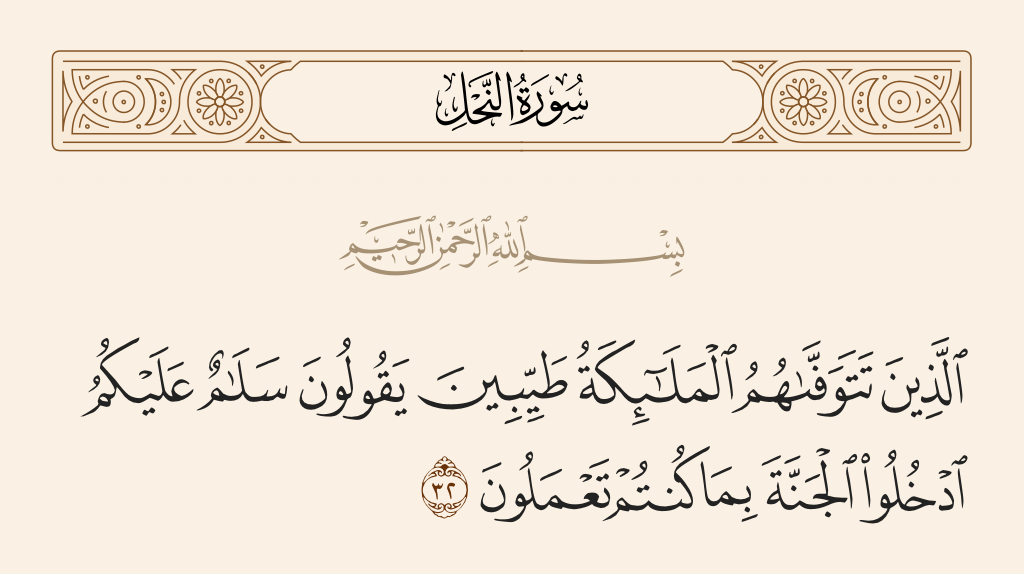 سُورَةُ النَّحْلِ
بِسْمِ ٱللَّهِ ٱلرَّحْمَٰنِ ٱلرَّحِيمِ
ٱلَّذِينَ تَتَوَفَّىٰهُمُ ٱلْمَلَـٰٓئِكَةُ طَيِّبِينَ يَقُولُونَ سَلَـٰمٌ عَلَيْكُمُ
ٱدْخُلُوا۟ ٱلْجَنَّةَ بِمَا كُنتُمْ تَعْمَلُونَ ٣٢